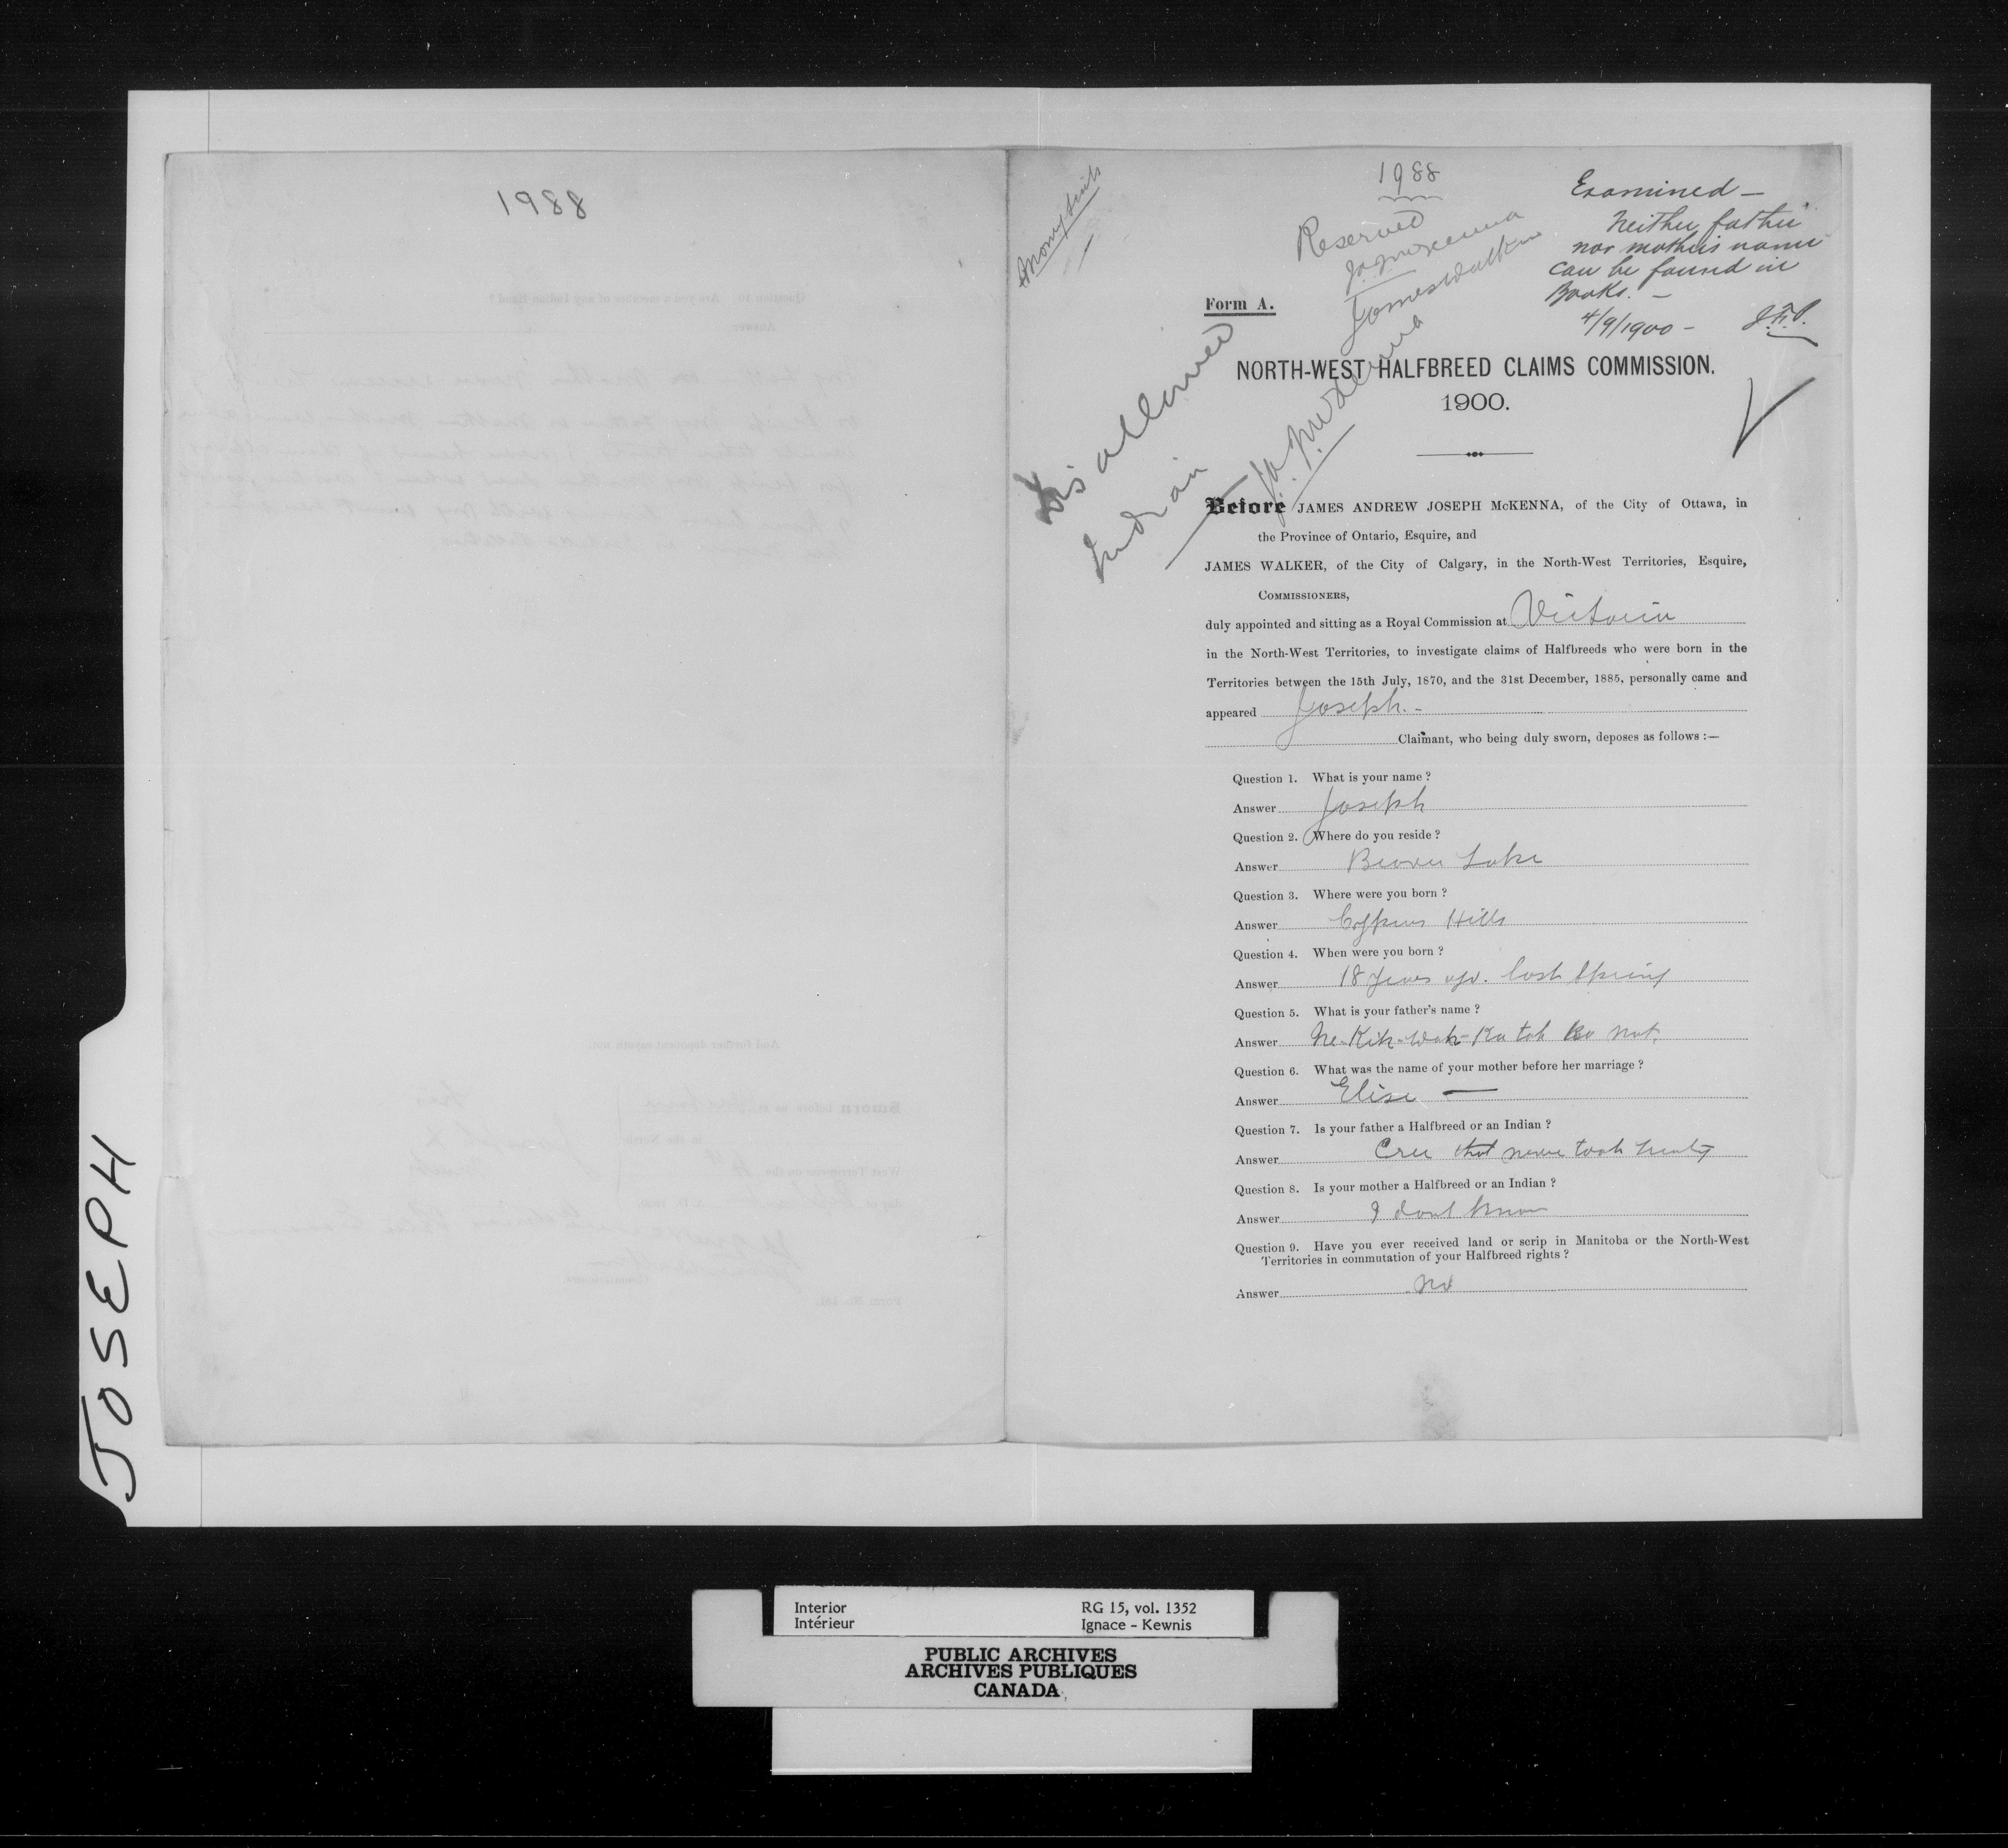 JOSEPH
1988
1988
Reserved
JAJMcKenna
James Walker
Examined —
Neither father
nor mother's name
can be found in
Books. —
4/9/1900 —
Form A.
Disallowed
Indian
JAJMcKenna
NORTH-WEST HALFBREED CLAIMS COMMISSION.
1900.
Before JAMES ANDREW JOSEPH McKENNA, of the City of Ottawa, in
the Province of Ontario, Esquire, and
JAMES WALKER, of the City of Calgary, in the North-West Territories, Esquire,
COMMISSIONERS,
duly appointed and sitting as a Royal Commission at Victoria
in the North-West Territories, to investigate claims of Halfbreeds who were born in the
Territories between the 15th July, 1870, and the 31st December, 1885, personally came and
appeared Joseph. -
Claimant, who being duly sworn, deposes as follows :—
Question 1. What is your name ?
Answer Joseph
Question 2. Where do you reside ?
Answer Beaver Lake
Question 3. Where were you born ?
Answer Cypress Hills
Question 4. When were you born ?
Answer 18 years ago. last Spring
Question 5. What is your father's name ?
Answer Ne-Kik-Wah-Ka tah
Question 6. What was the name of your mother before her marriage ?
Answer Elise —
Question 7. Is your father a Halfbreed or an Indian ?
Answer Cree that never took treaty
Question 8. Is your mother a Halfbreed or an Indian ?
Answer I dont know
Question 9. Have you ever received land or scrip in Manitoba or the North-West
Territories in commutation of your Halfbreed rights ?
Answer No
Interior RG 15, vol. 1352
Intérieur Ignace - Kewnis
PUBLIC ARCHIVES
ARCHIVES PUBLIQUES
CANADA